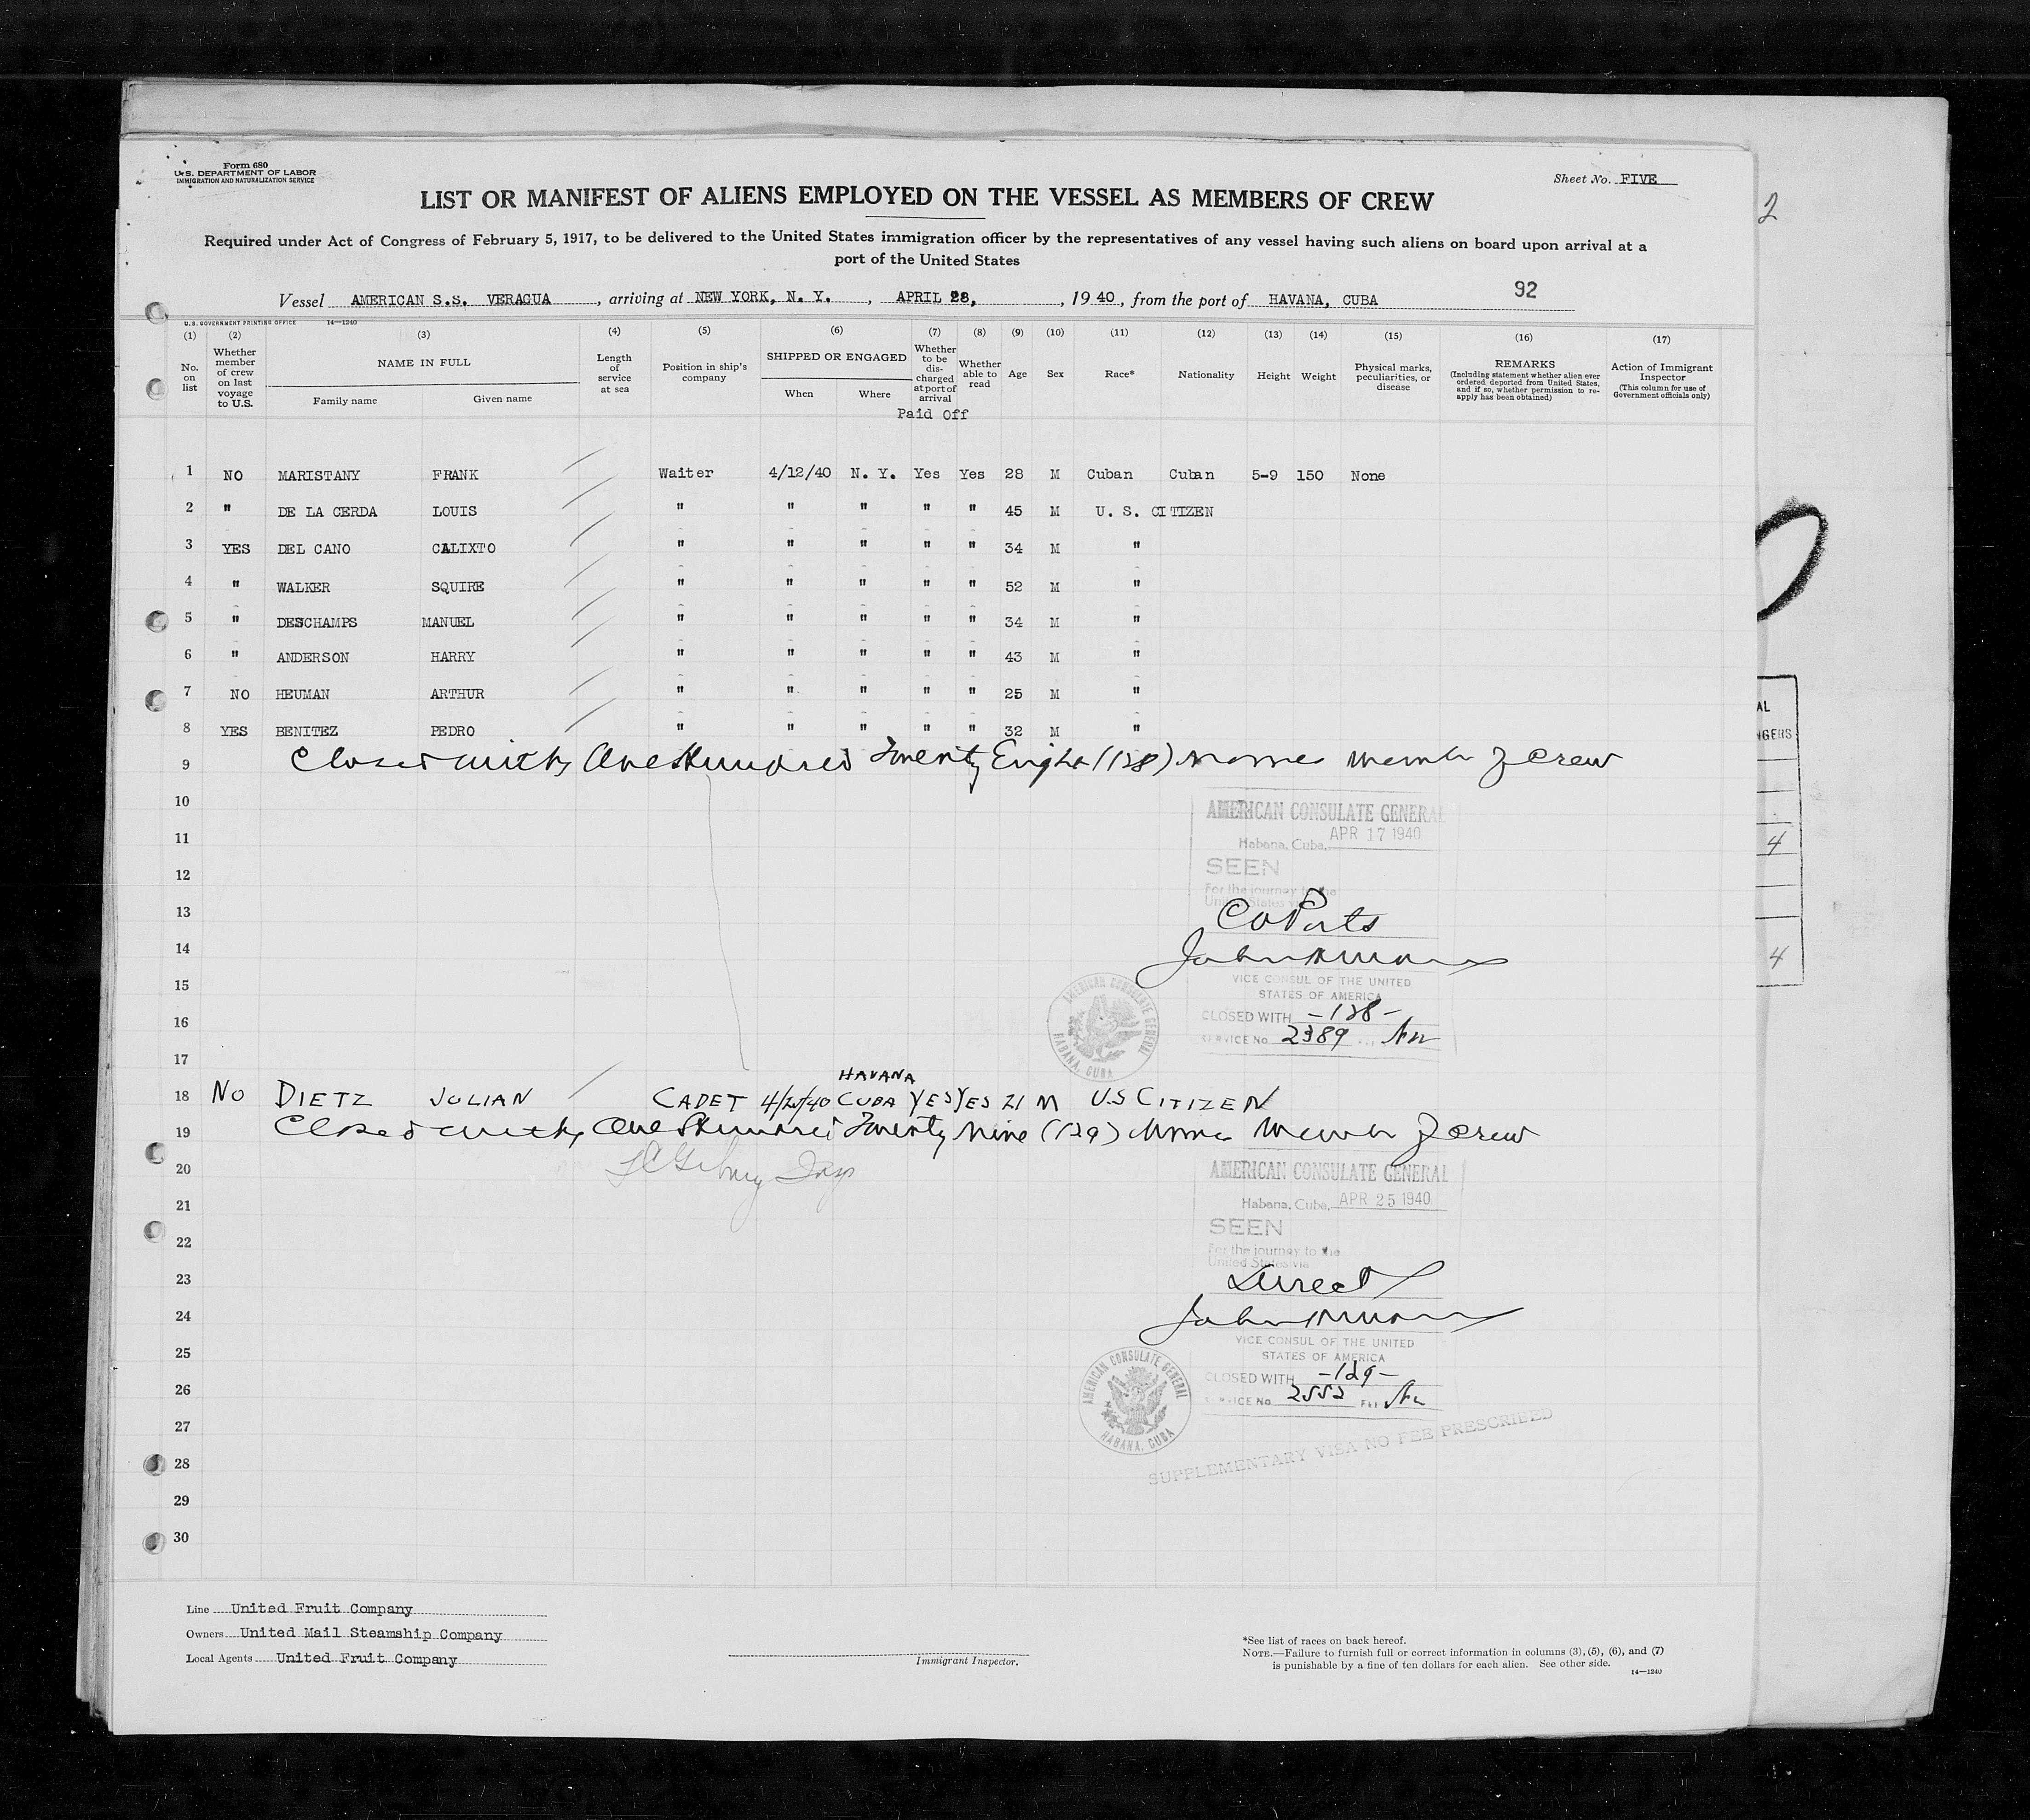 Form 680
U.S. DEPARTMENT OF LABOR
IMMIGRATION AND NATURALIZATION SERVICE
Sheet No. FIVE
LIST OR MANIFEST OF ALIENS EMPLOYED ON THE VESSEL AS MEMBERS OF CREW
Required under Act of Congress of February 5, 1917, to be delivered to the United States immigration officer by the representatives of any vessel having such aliens on board upon arrival at a
port of the United States
2
Vessel AMERICAN S.S. VERAGUA, arriving at NEW YORK, N. Y., APRIL 28, 1940, from the port of HAVANA, CUBA 92
U. S. GOVERNMENT PRINTING OFFICE 14—1240
(1) No. on list
(2) Whether member of crew on last voyage to U.S.
(3) NAME IN FULL Family name Given name
(4) Length of service at sea
(5) Position in ship's company
(6) SHIPPED OR ENGAGED When Where
(7) Whether to be discharged at port of arrival
(8) Whether able to read
(9) Age
(10) Sex
(11) Race*
(12) Nationality
(13) Height
(14) Weight
(15) Physical marks, peculiarities, or disease
(16) REMARKS (Including statement whether alien ever ordered deported from United States, and if so, whether permission to reapply has been obtained)
(17) Action of Immigrant Inspector (This column for use of Government officials only)
Paid Off
1 NO MARISTANY FRANK Waiter 4/12/40 N. Y. Yes Yes 28 M Cuban Cuban 5-9 150 None
2 " DE LA CERDA LOUIS " " " " " 45 M U. S. CITIZEN
3 YES DEL CANO CALIXTO " " " " " 34 M "
4 " WALKER SQUIRE " " " " " 52 M "
5 " DESCHAMPS MANUEL " " " " " 34 M "
6 " ANDERSON HARRY " " " " " 43 M "
7 NO HEUMAN ARTHUR " " " " " 25 M "
8 YES BENITEZ PEDRO " " " " " 32 M "
9 Closed with One Hundred Twenty Eight (128) Names Member of Crew
10
AMERICAN CONSULATE GENERAL
11
APR 17 1940
Habana, Cuba,
12
SEEN
For the journey to the
United States via
13
14
15
VICE CONSUL OF THE UNITED
STATES OF AMERICA
16
CLOSED WITH -128-
SERVICE No. 2389
AMERICAN CONSULATE GENERAL HABANA, CUBA
17
18 NO DIETZ JULIAN CADET 4/25/40 HAVANA CUBA YES YES 21 M U.S CITIZEN
19 Closed with One Hundred Twenty Nine (129) Names Member of Crew
20
AMERICAN CONSULATE GENERAL
21
Habana, Cuba, APR 25 1940
22
SEEN
For the journey to the
United States via
23
Direct
24
25
VICE CONSUL OF THE UNITED
STATES OF AMERICA
26
CLOSED WITH -129-
SERVICE No. 2552 Fee
AMERICAN CONSULATE GENERAL HABANA, CUBA
27
SUPPLEMENTARY VISA NO FEE PRESCRIBED
28
29
30
AL
NGERS
4
4
Line United Fruit Company
Owners United Mail Steamship Company
Local Agents United Fruit Company
Immigrant Inspector.
*See list of races on back hereof.
NOTE.—Failure to furnish full or correct information in columns (3), (5), (6), and (7)
is punishable by a fine of ten dollars for each alien. See other side.
14—1240